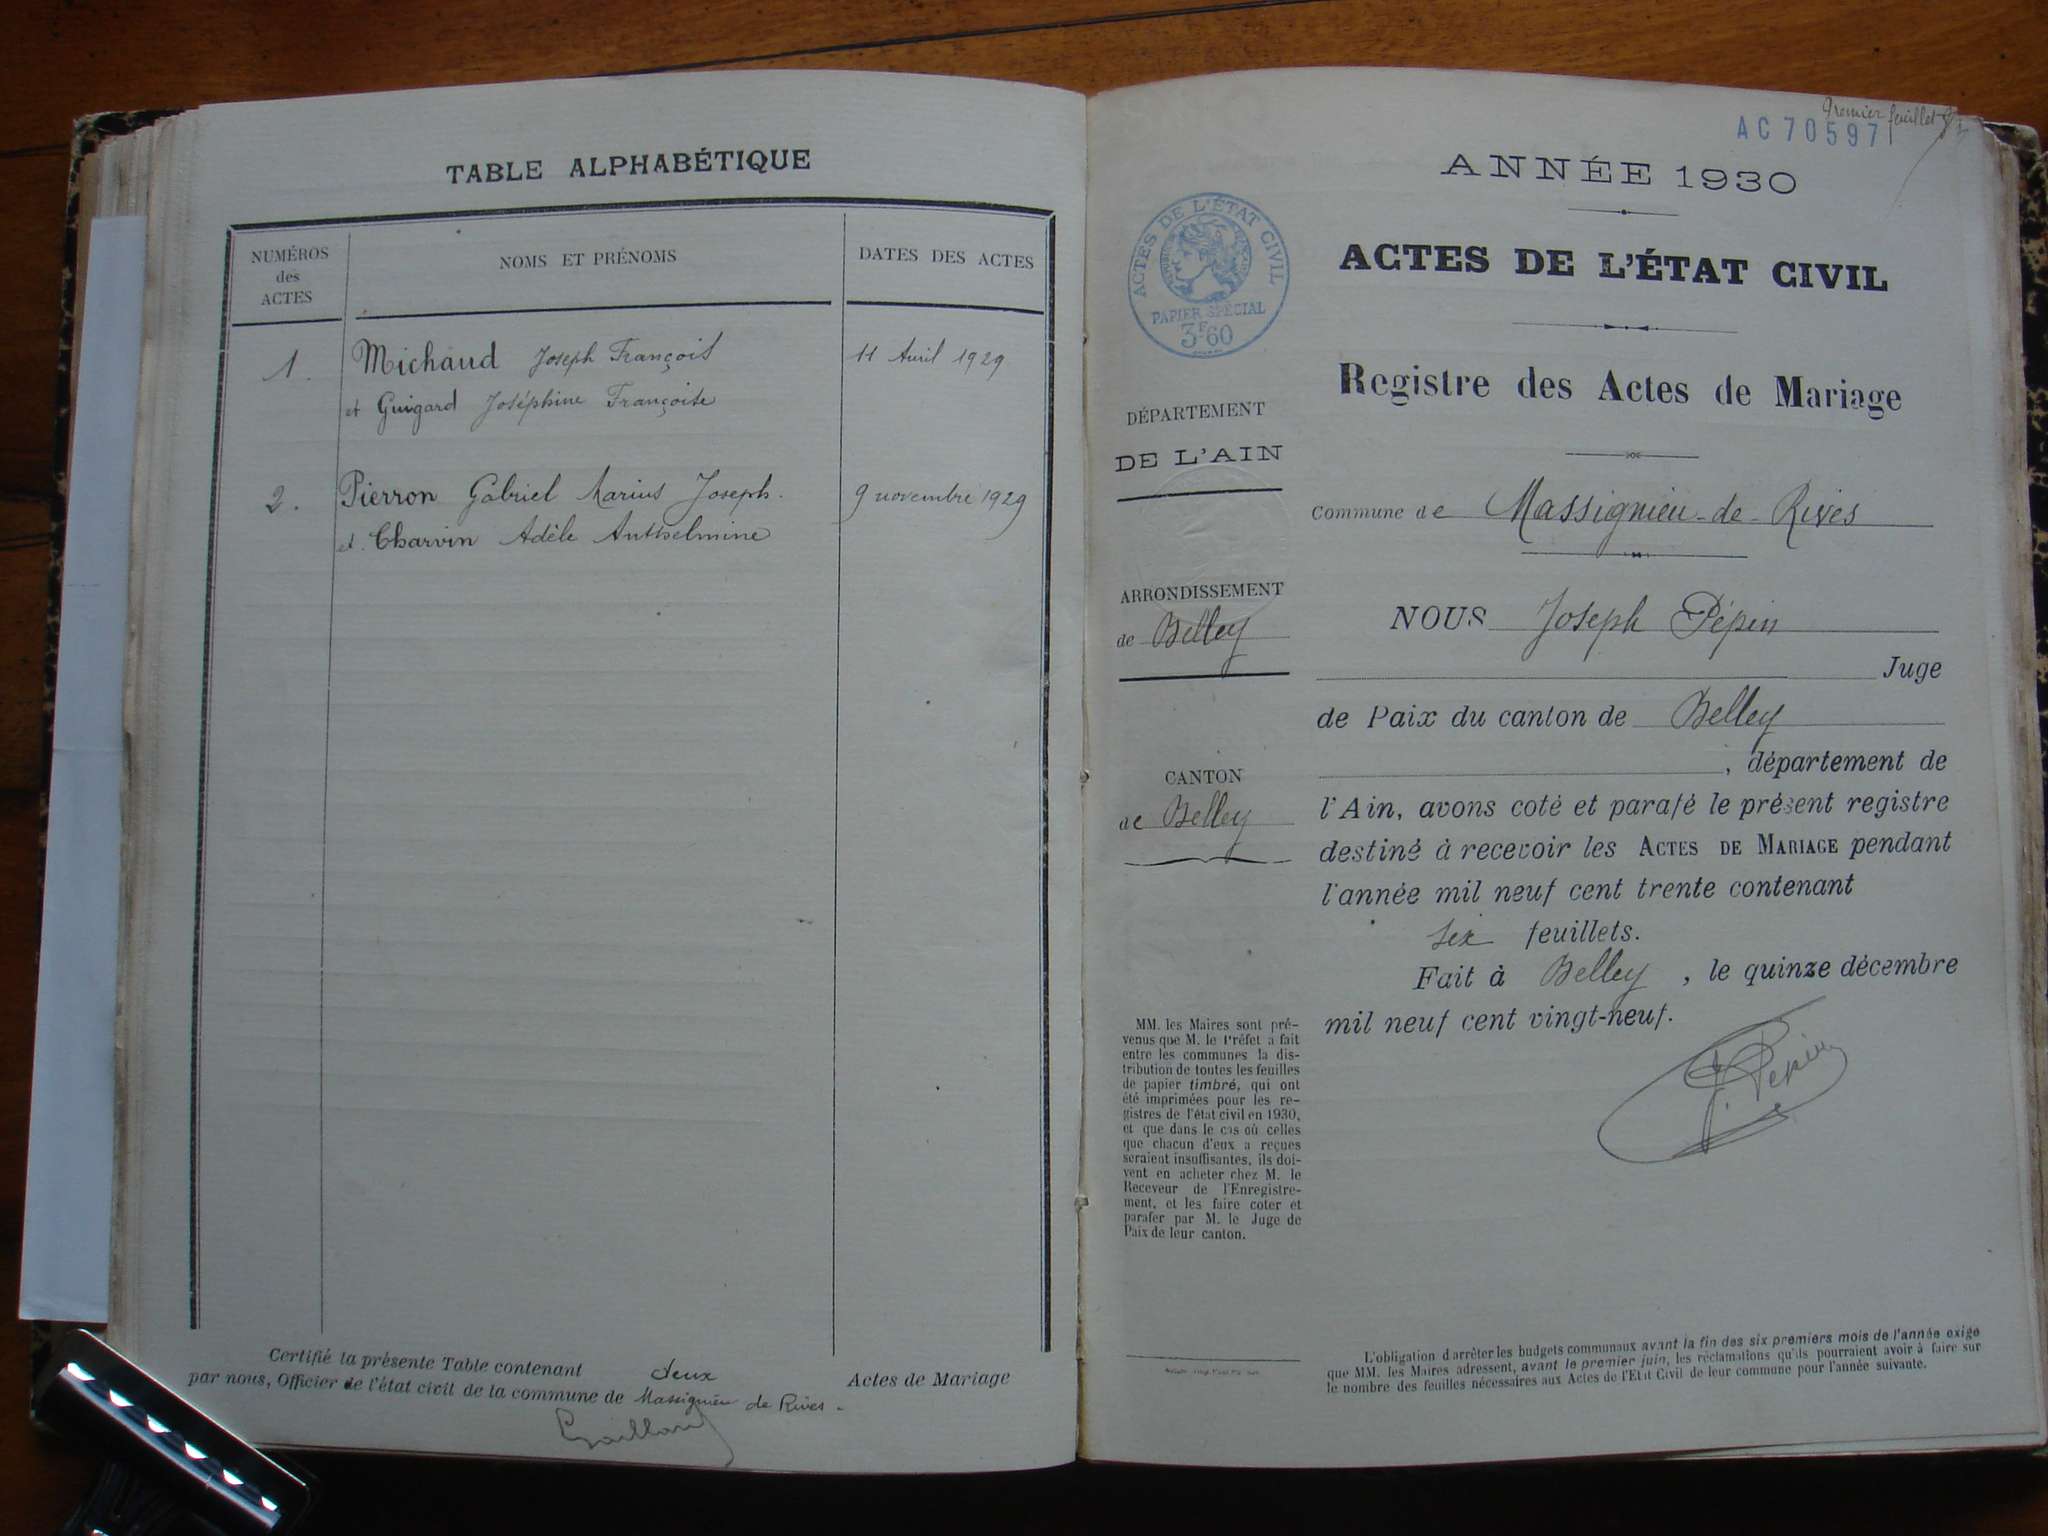 TABLE ALPHABÉTIQUE
NUMÉROS
des
ACTES
NOMS ET PRÉNOMS
DATES DES ACTES
1. Michaud Joseph François 11 Avril 1929
et Guigard Joséphine Françoise
2. Pierron Gabriel Marius Joseph. 9 novembre 1929
et Charvin Adèle Anthelmine
Certifié la présente Table contenant deux Actes de Mariage
par nous, Officier de l'état civil de la commune de Massignieu de Rives.
Gaillard
Premier feuillet
AC 705971
ANNÉE 1930
ACTES DE L'ÉTAT CIVIL
PAPIER SPÉCIAL
3F60
ACTES DE L'ÉTAT CIVIL
Registre des Actes de Mariage
DÉPARTEMENT
DE L'AIN
Commune de Massignieu-de-Rives
ARRONDISSEMENT
de Belley
CANTON
de Belley
NOUS Joseph Pépin
Juge
de Paix du canton de Belley
, département de
l'Ain, avons coté et parafé le présent registre
destiné à recevoir les ACTES DE MARIAGE pendant
l'année mil neuf cent trente contenant
six feuillets.
Fait à Belley, le quinze décembre
mil neuf cent vingt-neuf.
J. Pépin
MM. les Maires sont pré-
venus que M. le Préfet a fait
entre les communes la dis-
tribution de toutes les feuilles
de papier timbré, qui ont
été imprimées pour les re-
gistres de l'état civil en 1930,
et que dans le cas où celles
que chacun d'eux a reçues
seraient insuffisantes, ils doi-
vent en acheter chez M. le
Receveur de l'Enregistre-
ment, et les faire coter et
parafer par M. le Juge de
Paix de leur canton.
L'obligation d'arrêter les budgets communaux avant la fin des six premiers mois de l'année exige
que MM. les Maires adressent, avant le premier juin, les réclamations qu'ils pourraient avoir à faire sur
le nombre des feuilles nécessaires aux Actes de l'État Civil de leur commune pour l'année suivante.